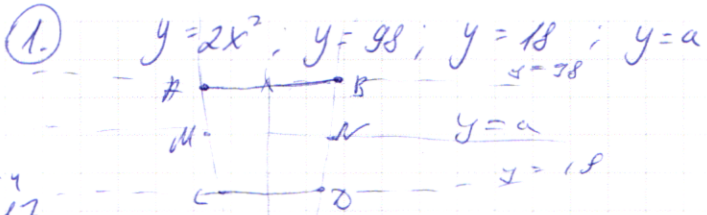 1. y = 2x²; y = 98; y = 18; y = a
y = 98
A B
M N y = a
y = 18
C D